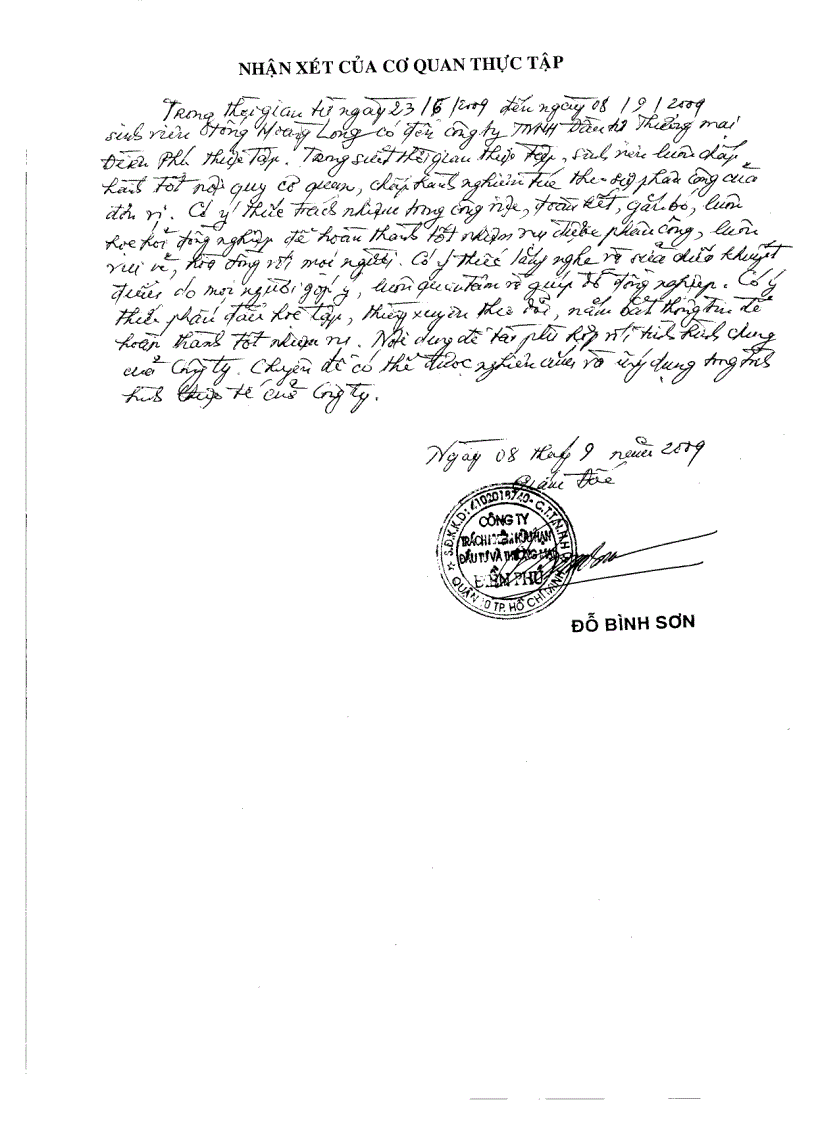 NHẬN XÉT CỦA CƠ QUAN THỰC TẬP
Trong thời gian từ ngày 23/6/2009 đến ngày 08/9/2009
sinh viên Tống Hoàng Long có đến công ty TNHH Đầu tư Thương mại
Điền Phú thực tập. Trong suốt thời gian thực tập, sinh viên luôn chấp
hành tốt nội quy cơ quan, chấp hành nghiêm túc theo sự phân công của
đơn vị. Có ý thức trách nhiệm trong công việc, đoàn kết, gắn bó, luôn
học hỏi đồng nghiệp để hoàn thành tốt nhiệm vụ được phân công, luôn
vui vẻ, hòa đồng với mọi người. Có ý thức lắng nghe và sửa chữa khuyết
điểm do mọi người góp ý, luôn quan tâm và giúp đỡ đồng nghiệp. Có ý
thức phấn đấu học tập, thường xuyên theo dõi, nắm bắt thông tin để
hoàn thành tốt nhiệm vụ. Nội dung đề tài phù hợp với tình hình chung
của Công ty. Chuyên đề có thể được nghiên cứu và ứng dụng trong tình
hình thực tế của Công ty.
Ngày 08 tháng 9 năm 2009
Giám Đốc
S.Đ.K.K.D: 4102018740 - C.T.T.N.H.H
CÔNG TY
TRÁCH NHIỆM HỮU HẠN
ĐẦU TƯ VÀ THƯƠNG MẠI
ĐIỀN PHÚ
QUẬN 10 TP. HỒ CHÍ MINH
ĐỖ BÌNH SƠN